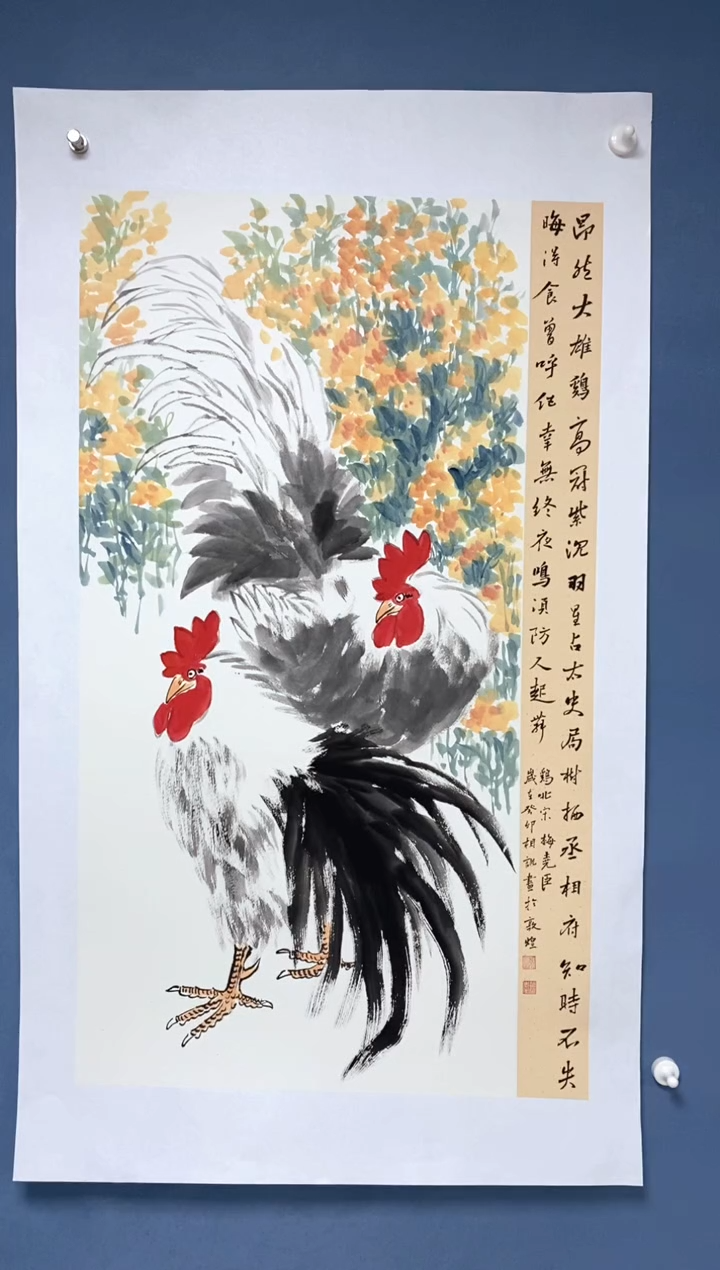 昂然大雄鷄高冠紫沉羽星占太史局樹栖丞相府知時不失
晦得食曾呼伫幸無終夜鳴須防人起舞
鷄北宋梅堯臣
歲在癸卯相訊畫於敦煌